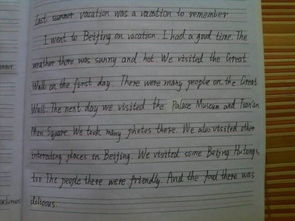 Last summer vacation was a vacation to remember
I went to Beijing on vacation. I had a good time. The
weather there was sunny and hot. We visited the Great
Wall on the first day. There were many people on the Great
Wall. The next day we visited the Palace Museum and Tian'an
Men Square. We took many photos there. We also visited other
interesting places in Beijing. We visited some Beijing Hutongs,
too. The people there were friendly. And the food there was
delicious.